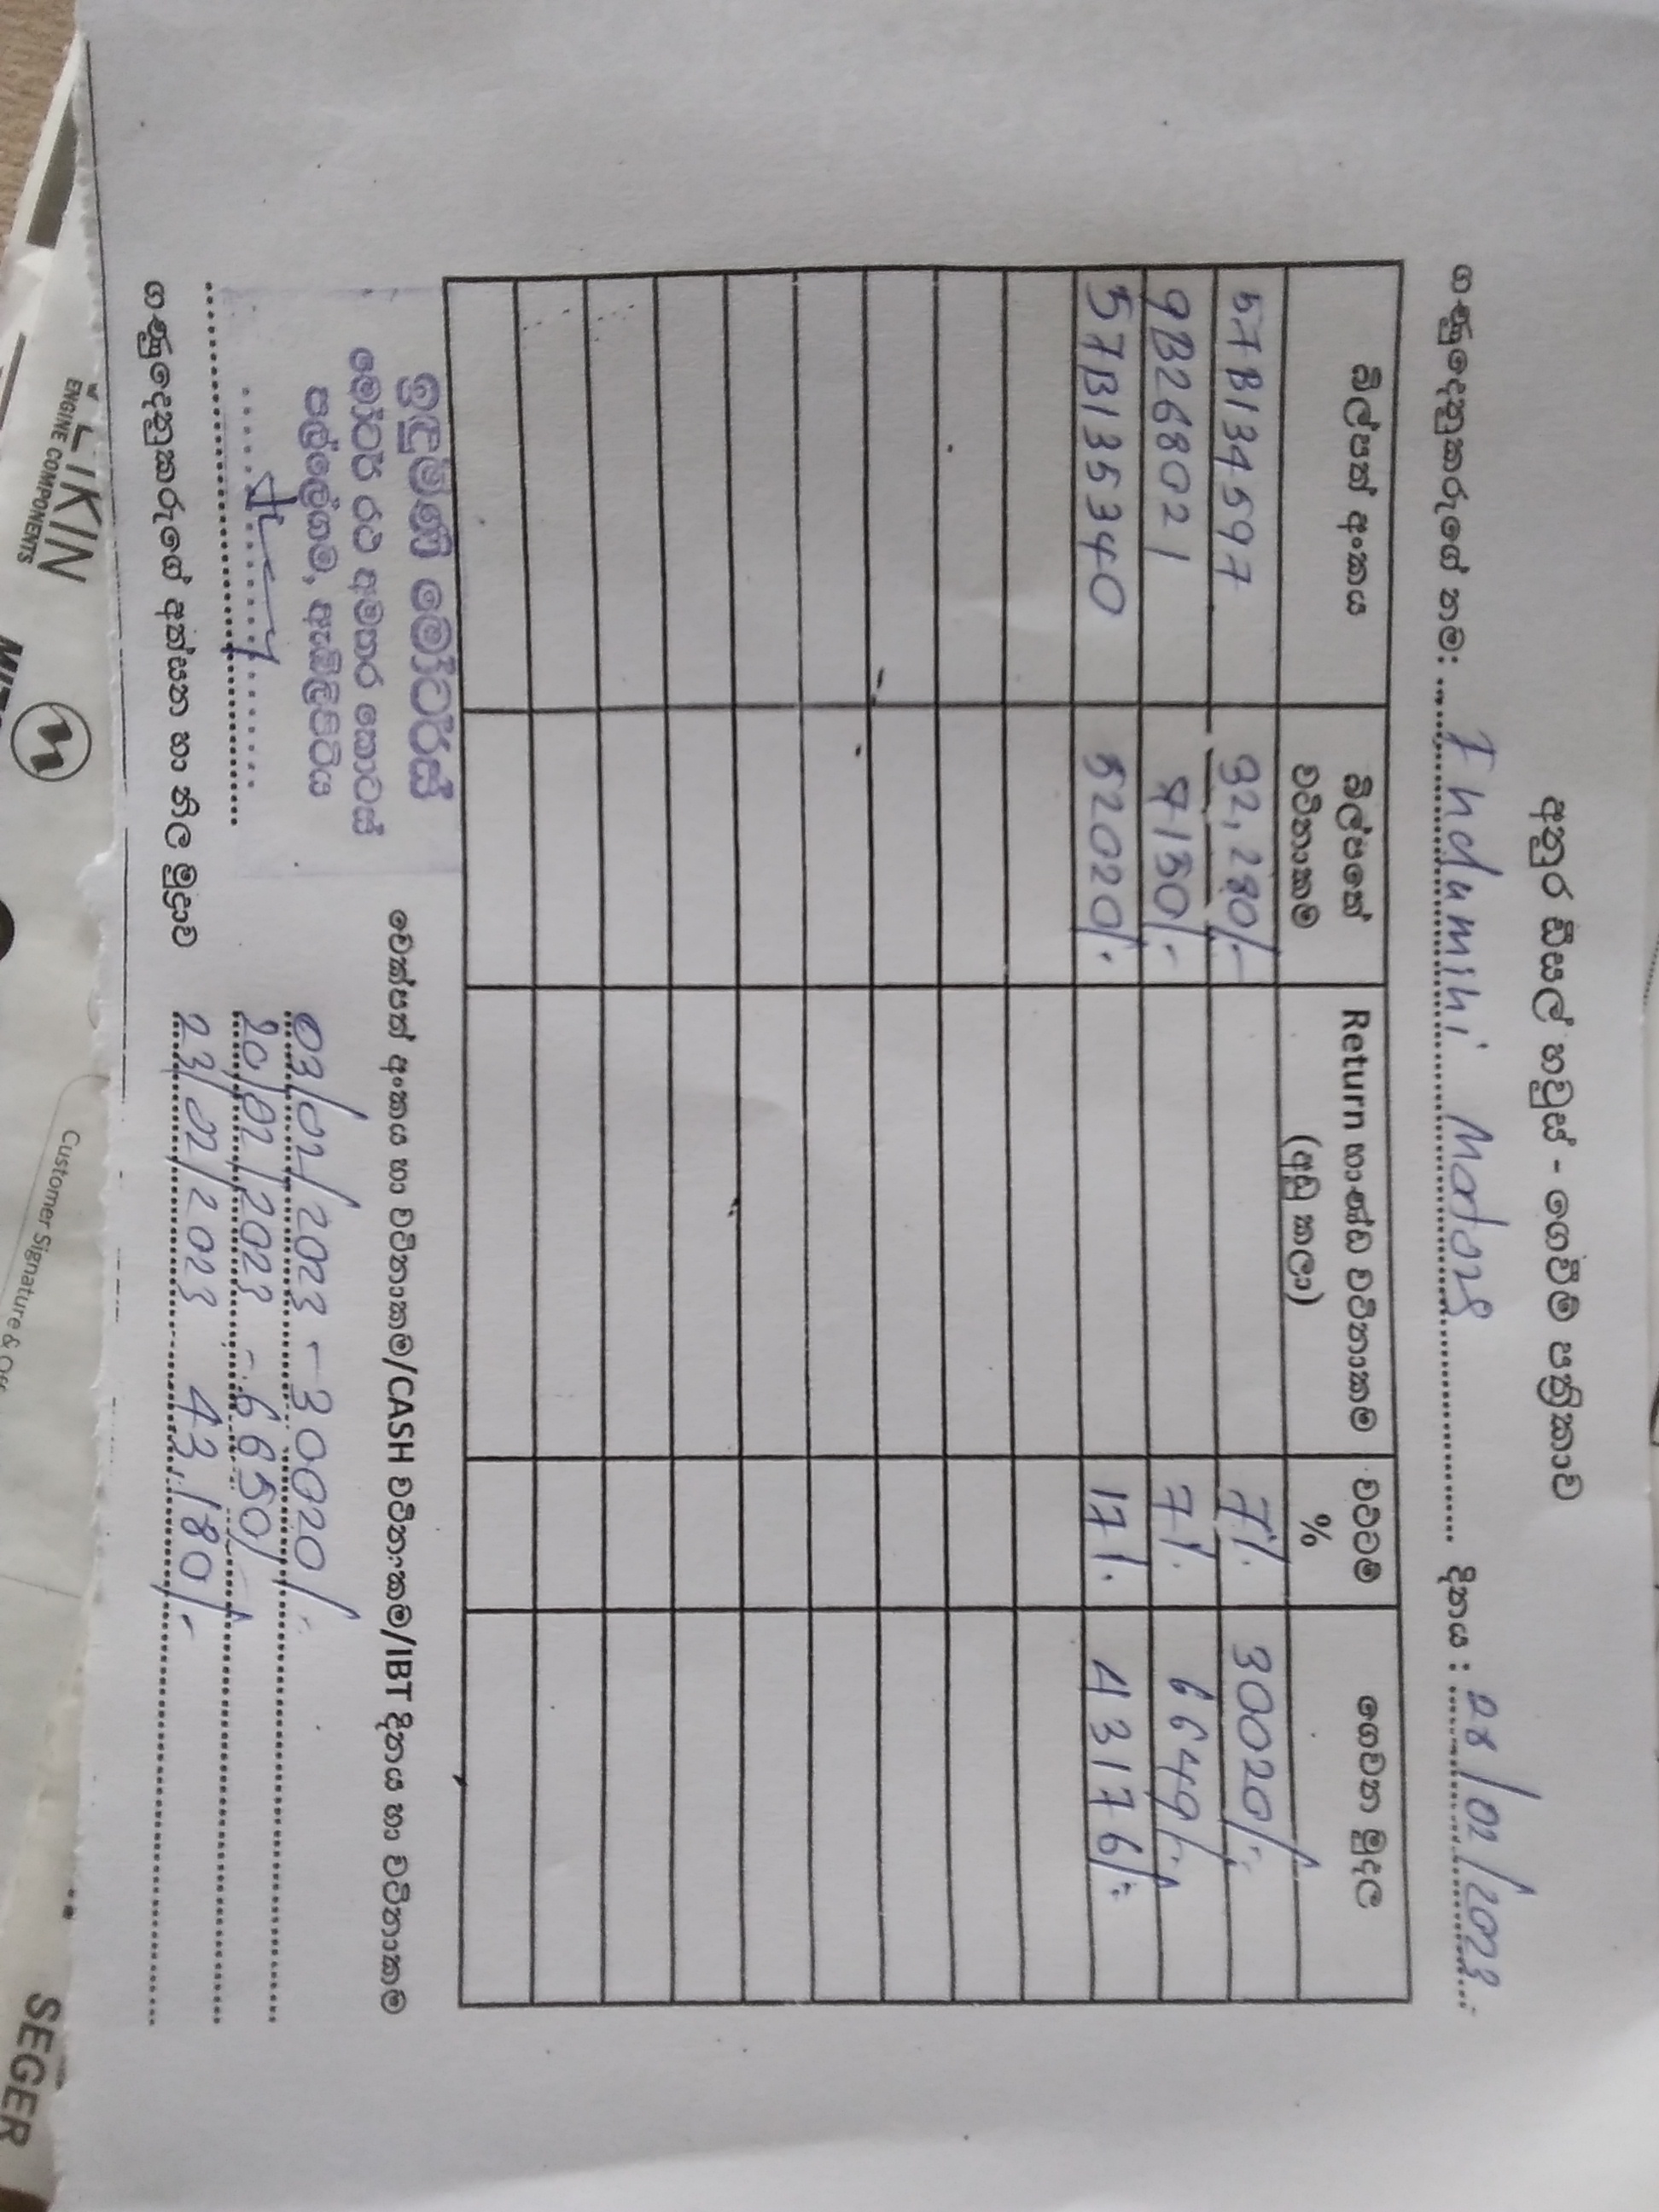 අනුර ඩීසල් හවුස් - ගෙවීම් පත්‍රිකාව
ගණුදෙනුකරුගේ නම: Indumini Motors දිනය : 28/02/2023
බිල්පත් අංකය බිල්පතේ වටිනාකම Return භාණ්ඩ වටිනාකම (අඩු කලා) වට්ටම් % ගෙවන මුදල
57B134597 32,280/- 7% 30020/-
9B26802 1 7150/- 7% 6649/-
57B135340 52020/- 17% 43176/-
ඉඳුමිණි මෝටර්ස්
මෝටර් රථ අමතර කොටස්
පල්ලේගම, ඇඹිලිපිටිය
ගණුදෙනුකරුගේ අත්සන හා නිල මුද්‍රාව
චෙක්පත් අංකය හා වටිනාකම/CASH වටිනාකම/IBT දිනය හා වටිනාකම
03/02/2023 - 30020/-
20/02/2023 - 6650/-
23/02/2023 43,180/-
ELIKIN
ENGINE COMPONENTS
Customer Signature &
SEGER